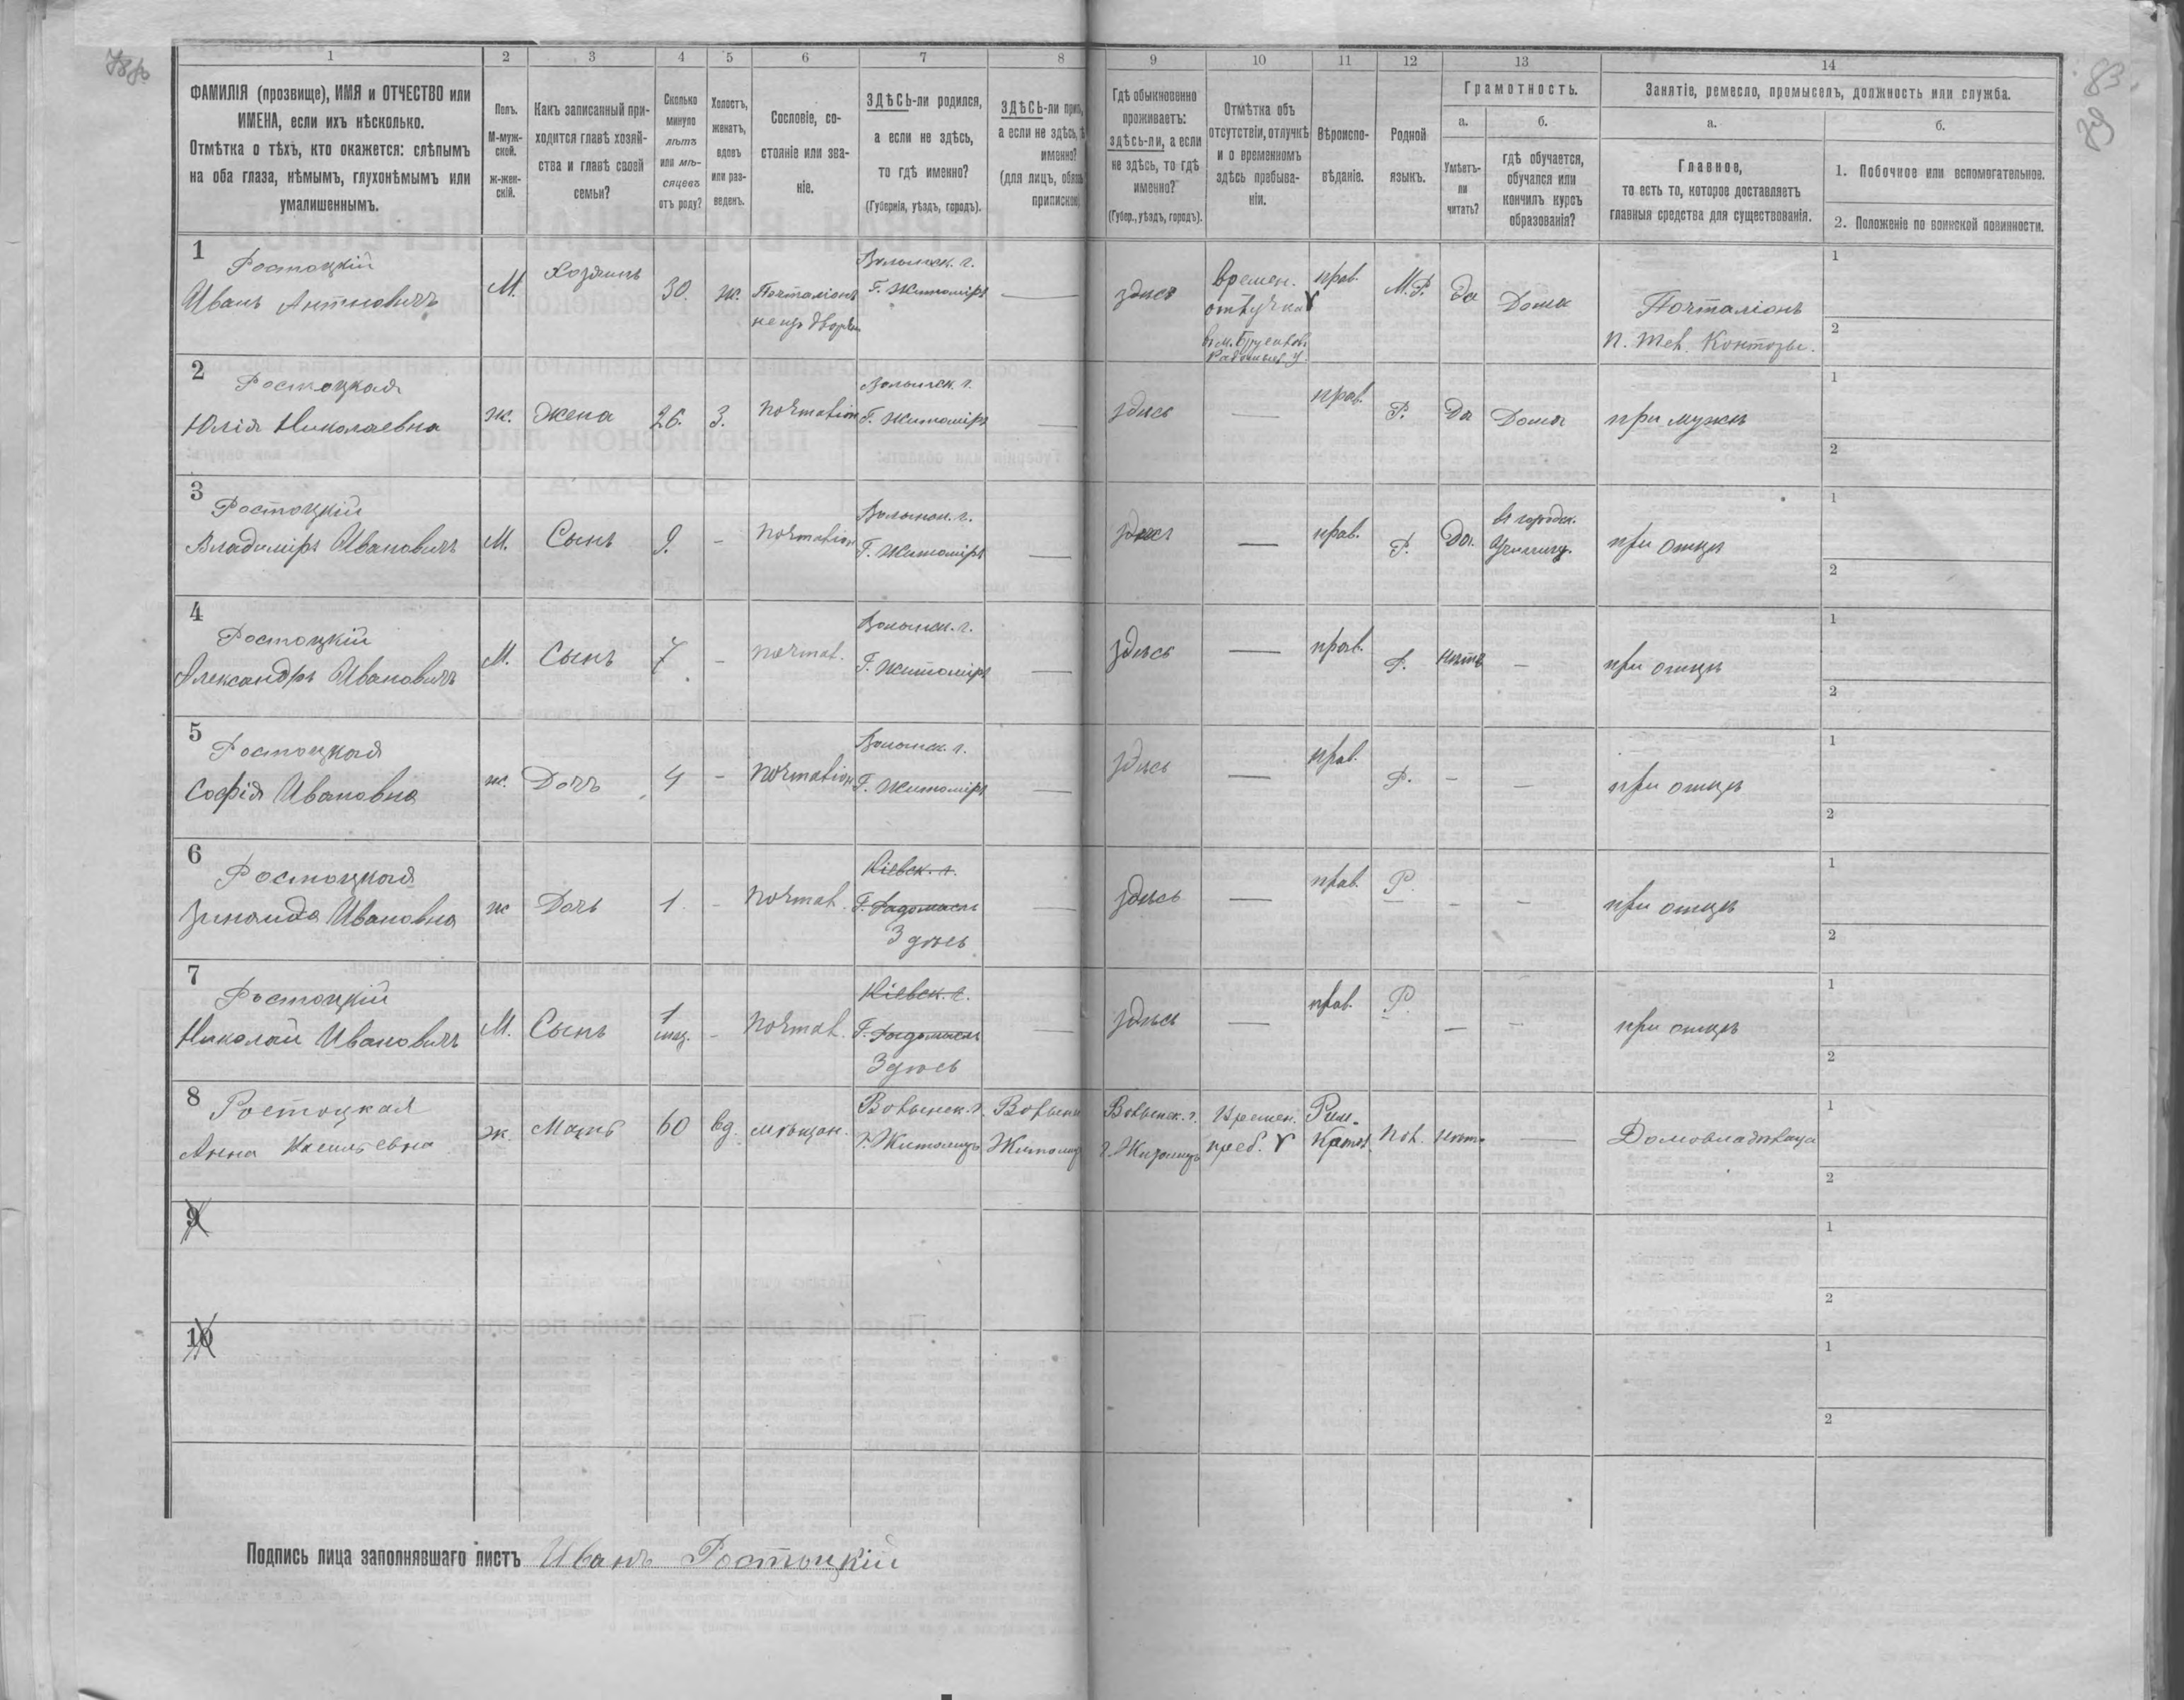 83.
79
1 2 3 4 5 6 7 8 9 10 11 12 13 14
ФАМИЛІЯ (прозвище), ИМЯ и ОТЧЕСТВО или
ИМЕНА, если ихъ нѣсколько.
Отмѣтка о тѣхъ, кто окажется: слѣпымъ
на оба глаза, нѣмымъ, глухонѣмымъ или
умалишеннымъ.
Полъ.
М-муж-
ской.
ж-жен-
скій.
Какъ записанный при-
ходится главѣ хозяй-
ства и главѣ своей
семьи?
Сколько
минуло
лѣтъ
или мѣ-
сяцевъ
отъ роду?
Холостъ,
женатъ,
вдовъ
или раз-
веденъ.
Сословіе, со-
стояніе или зва-
ніе.
ЗДѢСЬ-ли родился,
а если не здѣсь,
то гдѣ именно?
(Губернія, уѣздъ, городъ).
ЗДѢСЬ-ли прип
а если не здѣсь,
именно?
(для лицъ, обяз
припискою
Гдѣ обыкновенно
проживаетъ:
здѣсь-ли, а если
не здѣсь, то гдѣ
именно?
(Губер., уѣздъ, городъ).
Отмѣтка объ
отсутствіи, отлучкѣ
и о временномъ
здѣсь пребыва-
ніи.
Вѣроиспо-
вѣданіе.
Родной
языкъ.
Грамотность.
а.
Умѣетъ-
ли
читать?
б.
гдѣ обучается,
обучался или
кончилъ курсъ
образованія?
Занятіе, ремесло, промыселъ, должность или служба.
а.
Главное,
то есть то, которое доставляетъ
главныя средства для существованія.
б.
1. Побочное или вспомогательное.
2. Положеніе по воинской повинности.
1 Ростоцкій
Иванъ Антоновичъ
М.
Хозяинъ
30.
ж.
Почталіонъ
не изъ дворян
Волынск. г.
Г. Житоміръ
—
здѣсь
времен.
отлучка
прав.
М.Р.
Да
Дома
Почталіонъ
п. тел. Конторы.
1
2
2 Ростоцкая
Юлія Николаевна
ж.
Жена
26.
З.
Волынск. г.
Г. Житоміръ
здѣсь
—
прав.
Р.
Да
Дома
при мужѣ
1
2
3 Ростоцкій
Владиміръ Ивановичъ
М.
Сынъ
9.
-
Волынск. г.
Г. Житоміръ
—
здѣсь
—
прав.
Р.
Да.
въ городск.
Училищ.
при отцѣ
1
2
4 Ростоцкій
Александръ Ивановичъ
М.
Сынъ
7
-
Волынск. г.
Г. Житоміръ
—
здѣсь
—
прав.
Р.
нѣтъ
-
при отцѣ
1
2
5 Ростоцкая
Софія Ивановна
ж.
Дочь
4
-
Волынск. г.
Г. Житоміръ
—
здѣсь
—
прав.
Р.
-
-
при отцѣ
1
2
6 Ростоцкая
Зинаида Ивановна
ж
Дочь
1
-
Кіевск. г.
Г. Радомысль
Здѣсь
—
здѣсь
—
прав.
Р.
-
-
при отцѣ
1
2
7 Ростоцкій
Николай Ивановичъ
М.
Сынъ
1
мѣс.
-
Кіевск. г.
Г. Радомысль
Здѣсь
—
здѣсь
—
прав.
Р.
-
-
при отцѣ
1
2
8 Ростоцкая
Анна Васильевна
ж.
Мать
60
вд.
мѣщан.
Волынск. г.
г. Житоміръ
Волынск
Житомір
Волынск. г.
г. Житоміръ
Времен.
преб.
Рим.
Катол.
Пол.
нѣтъ
—
Домовладѣлица
1
2
9
1
2
10
1
2
Подпись лица заполнявшаго листъ Иванъ Ростоцкій